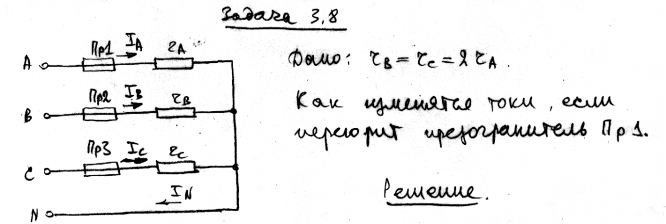 Задача 3,8
A Пр1 I_A r_A
B Пр2 I_B r_B
C Пр3 I_C r_C
N I_N
Дано: r_B = r_C = 2 r_A.
Как изменятся токи, если
перегорит предохранитель Пр1.
Решение.